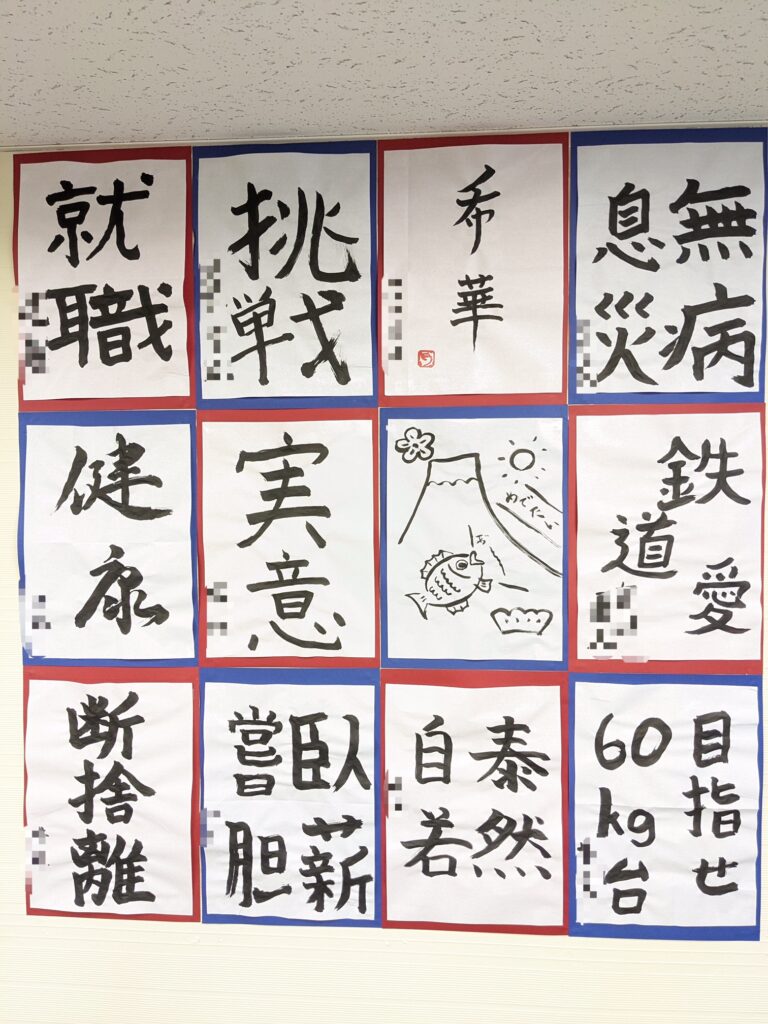 就職
挑戦
希華
無病
息災
健康
実意
めでたい
鉄
道
愛
断捨離
臥薪
嘗胆
泰然
自若
目指せ
60
kg
台